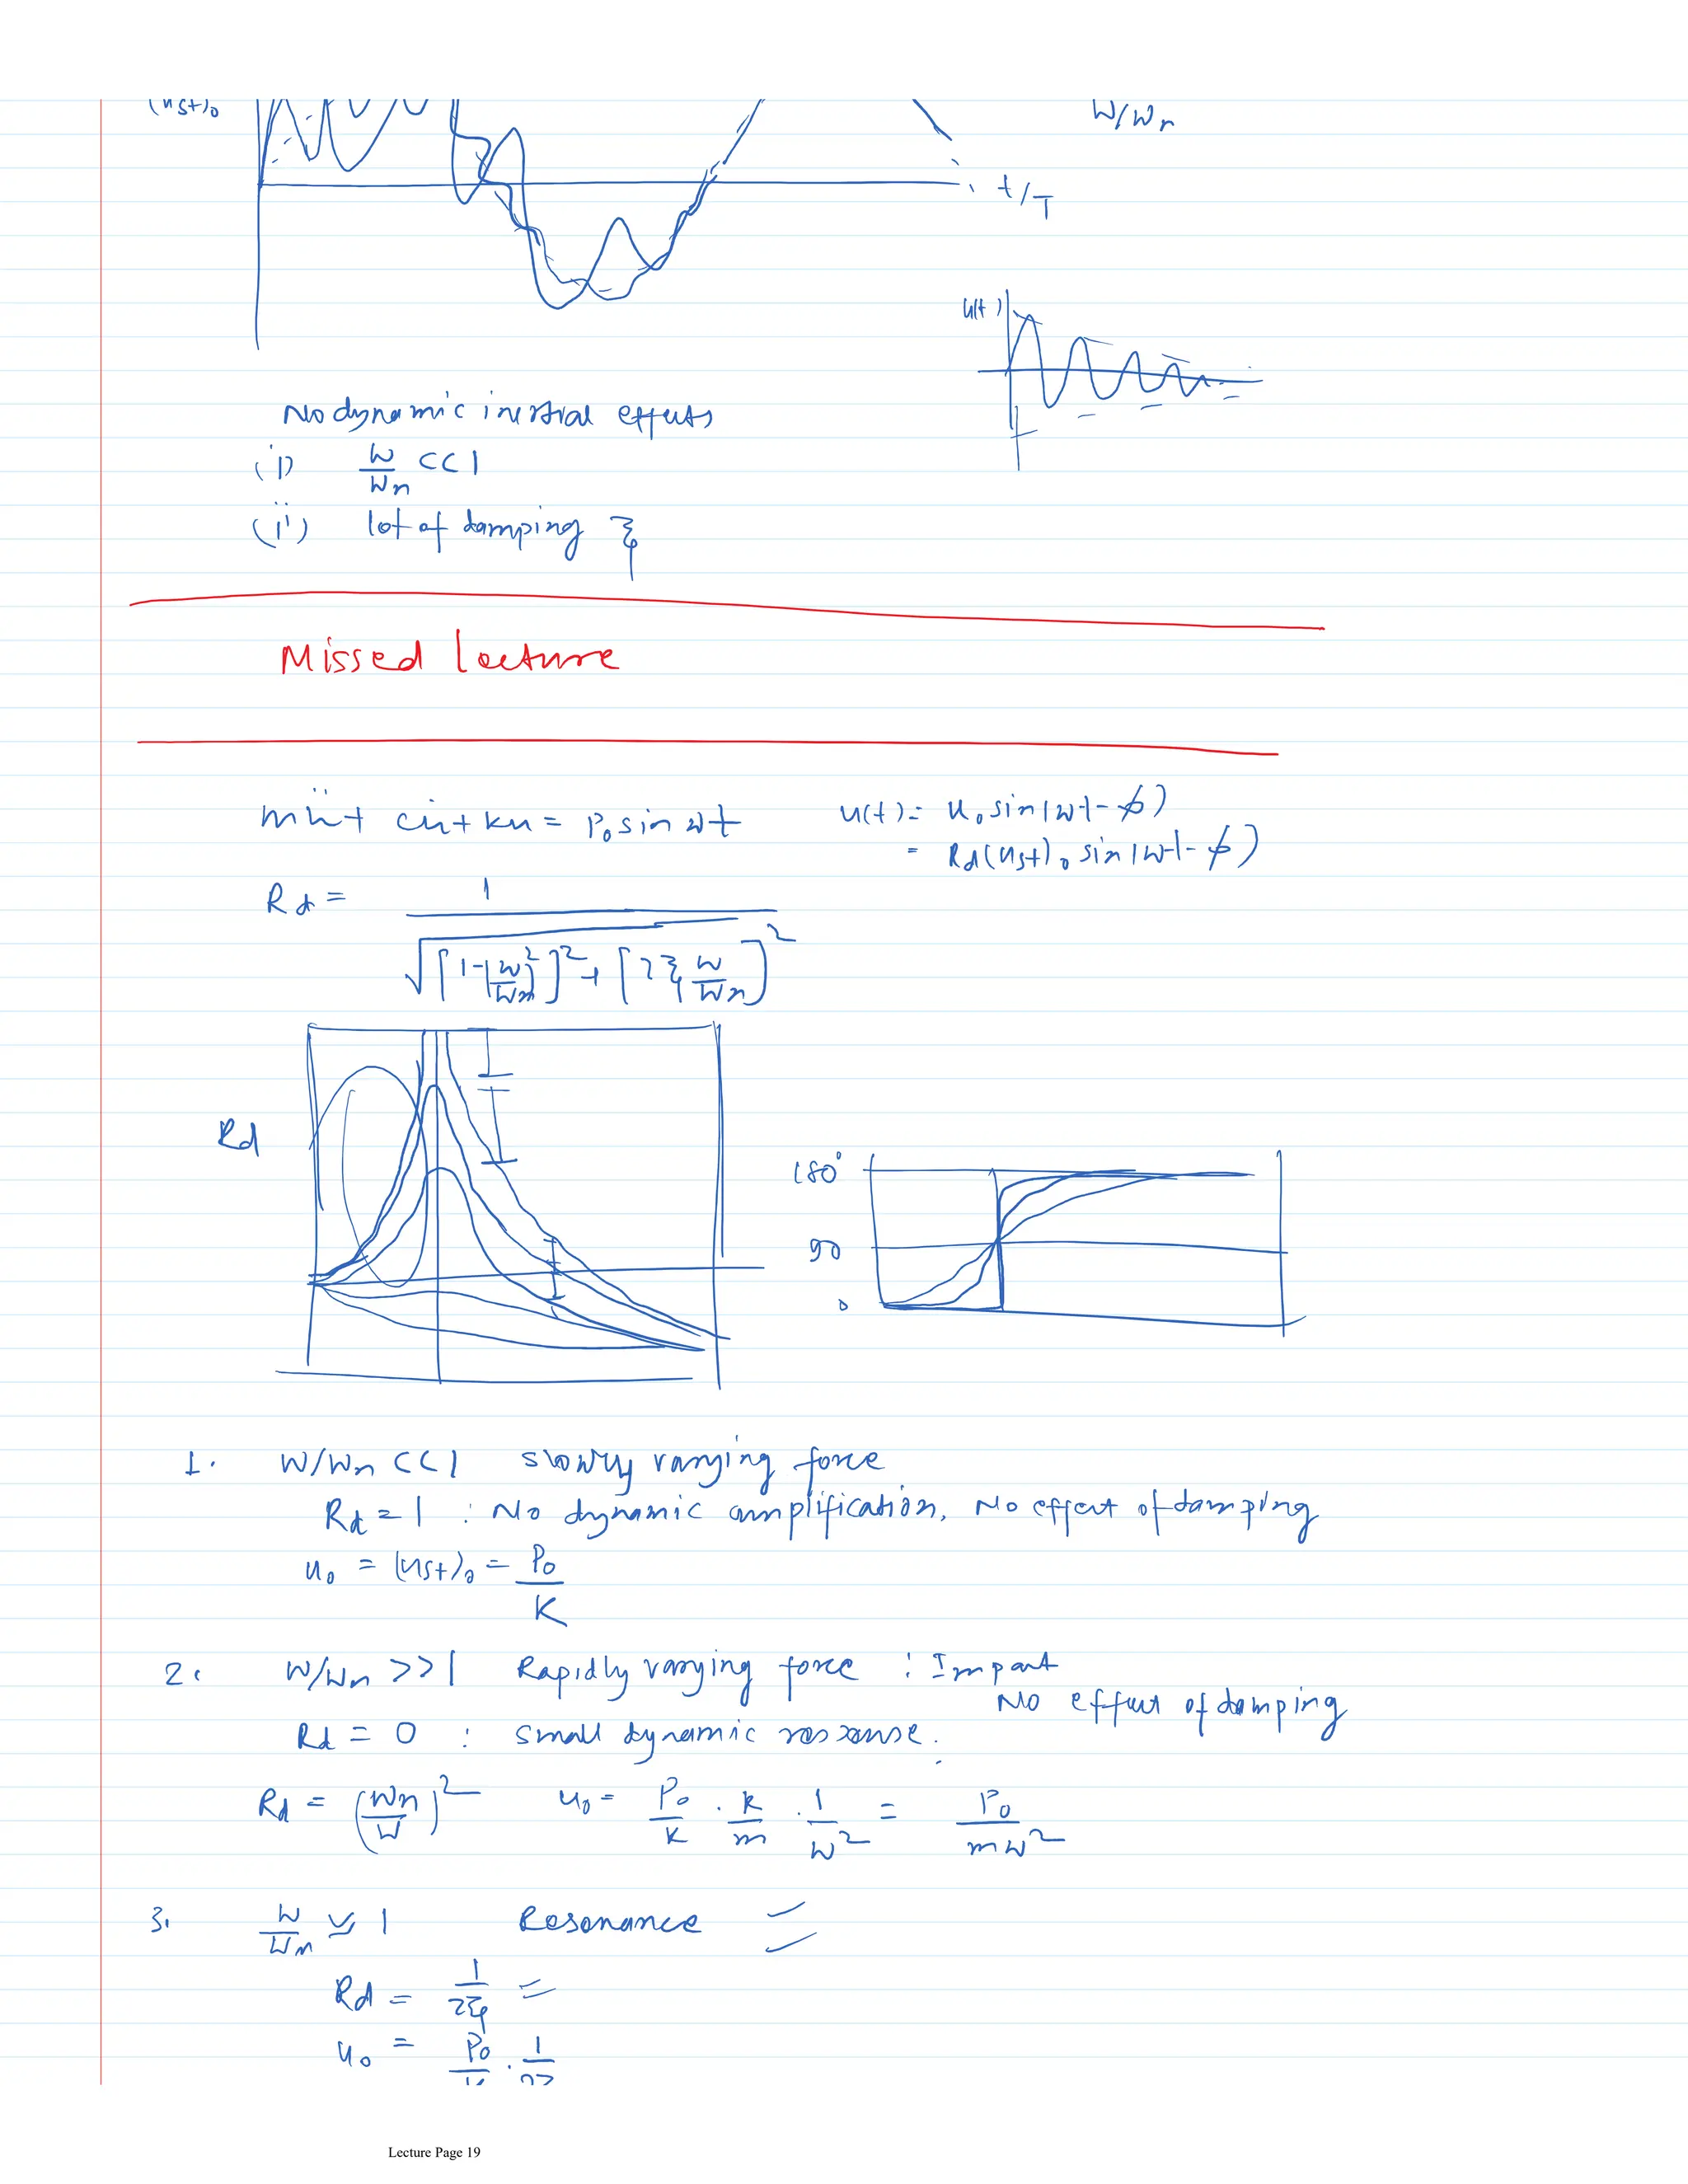 (ust)₀
W/Wn
t/T
u(t)
No dynamic inertial effects
(i) W/Wn << 1
(ii) lot of damping ξ
Missed lecture
mü + cu̇ + ku = P₀ sin wt
u(t) = u₀ sin(wt - ϕ)
= Rd(ust)₀ sin(wt - ϕ)
Rd = 1 / √([1-(W/Wn)²]² + [2ξ W/Wn]²)
Rd
180°
90
0
1. W/Wn << 1 slowly varying force
Rd = 1 : No dynamic amplification, No effect of damping
u₀ = (ust)₀ = P₀/K
2. W/Wn >> 1 Rapidly varying force : Impact
No effect of damping
Rd = 0 : small dynamic response.
Rd = (Wn/W)² u₀ = P₀/k · k/m · 1/W² = P₀/mW²
3. W/Wn ≃ 1 Resonance
Rd = 1/2ξ =
u₀ = P₀/k · 1/2
Lecture Page 19